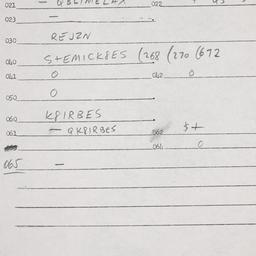 021 — QBLIMELAX 022
023 —
030 REJZN
040 S+EMICK8ES (268 (270 (672
041 0 042 0
050 0
060 K8IRBES
061 — QK8IRBES 062 5+
064 0
065 —